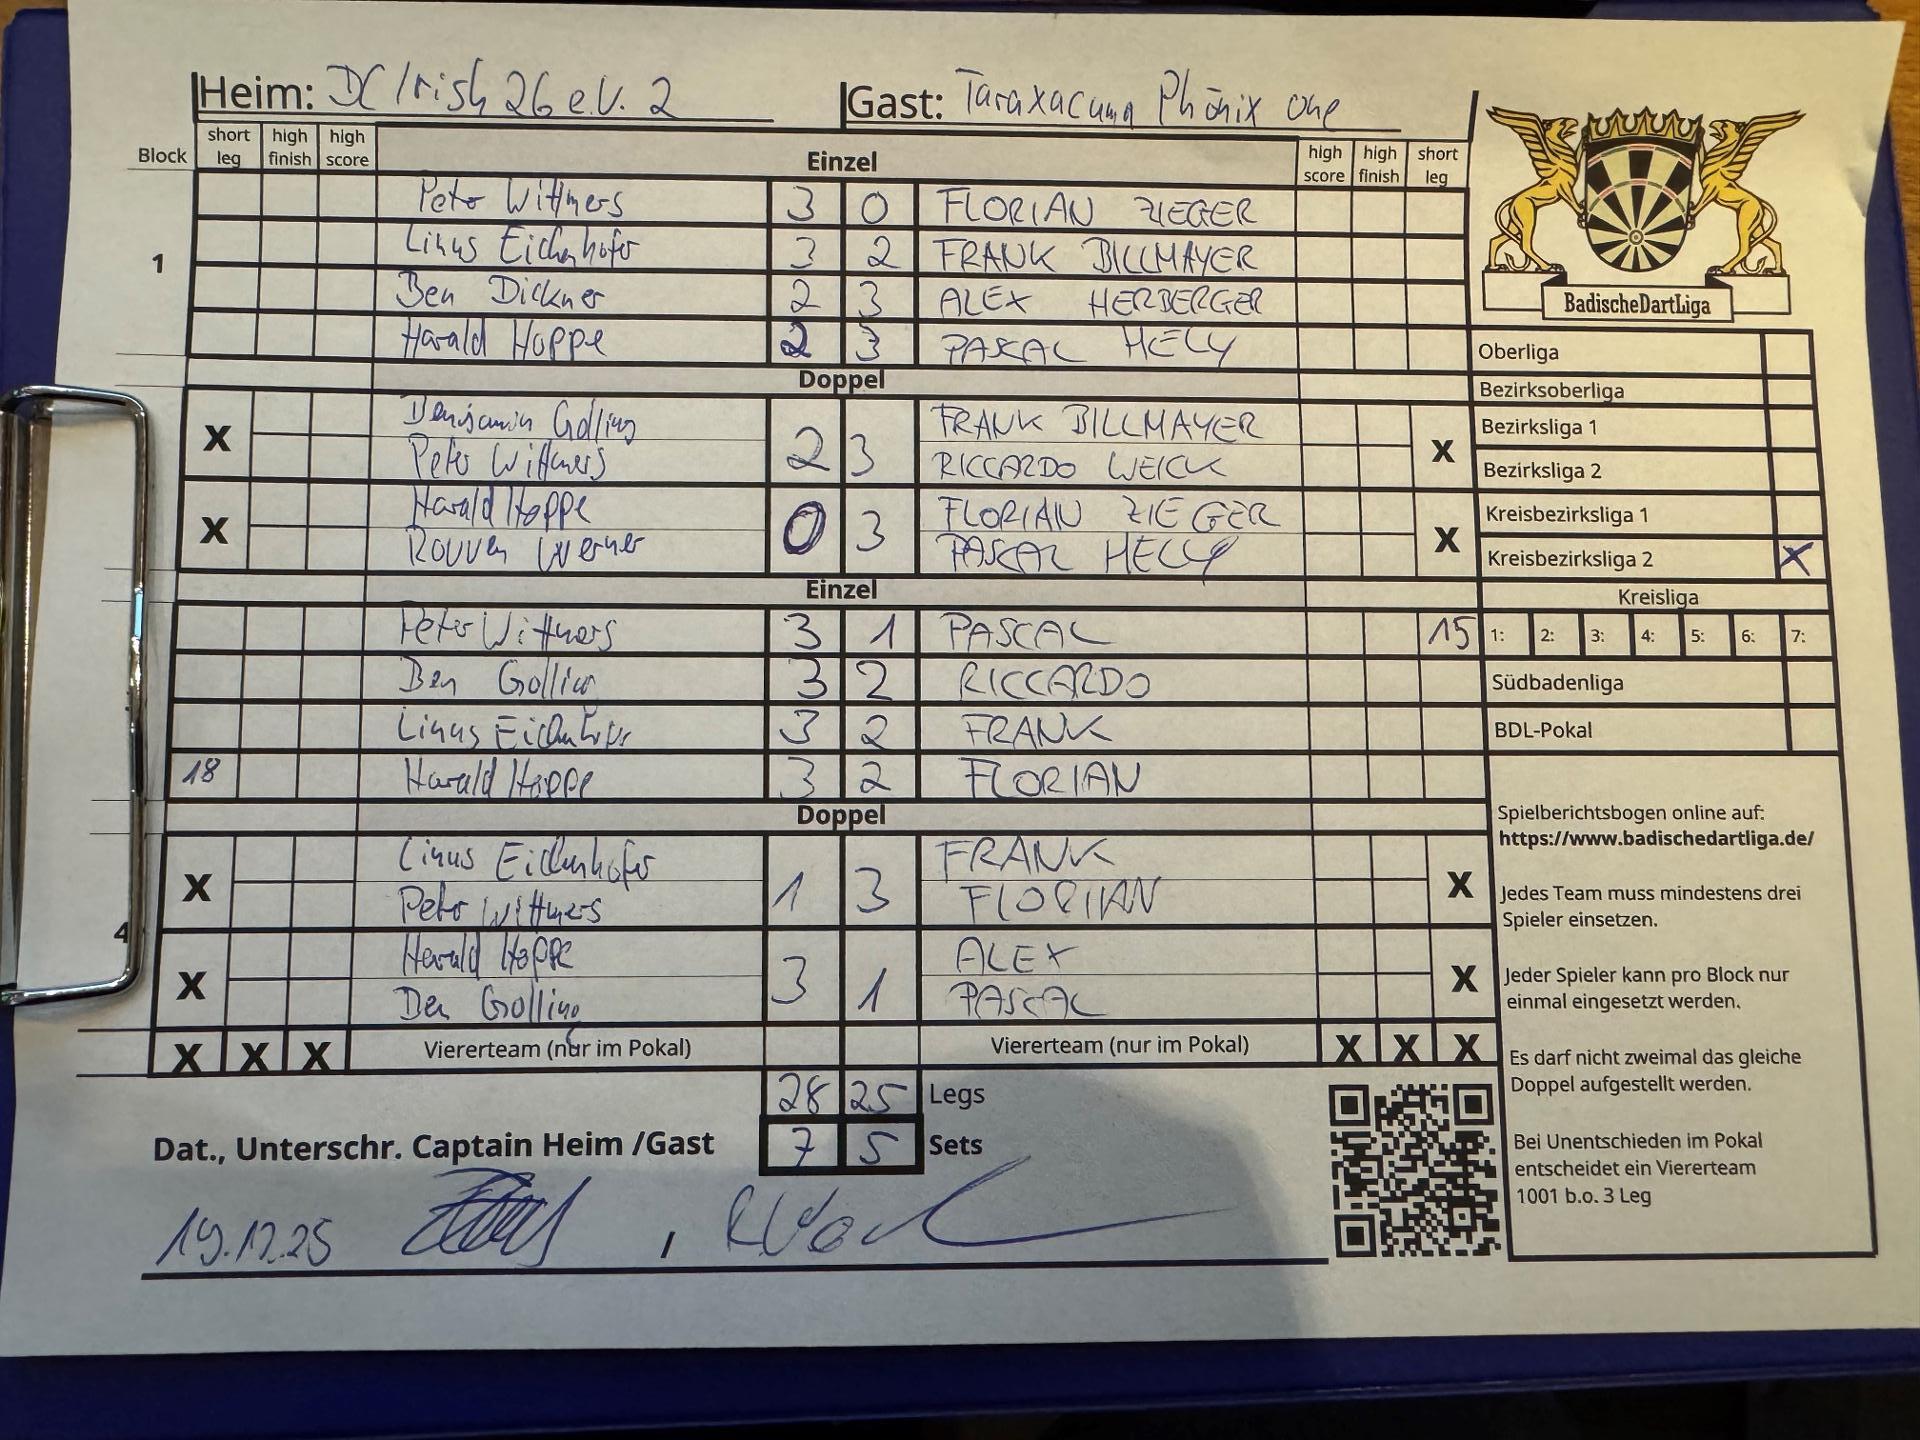 Heim: DC Irish 26 e.V. 2 Gast: Taraxacum Phönix one
Block short leg high finish high score Einzel high score high finish short leg
Peter Wittmers 3 0 FLORIAN ZIEGER
1 Linus Eichenhofer 3 2 FRANK BILLMAYER
Ben Dickner 2 3 ALEX HERBERGER
BadischeDartLiga
Harald Hoppe 2 3 PASCAL HELY
Oberliga
Doppel
Bezirksoberliga
Benjamin Golling FRANK BILLMAYER
Bezirksliga 1
X 2 3 X
Peter Wittmers RICCARDO WEICK
Bezirksliga 2
Harald Hoppe FLORIAN ZIEGER
Kreisbezirksliga 1
X 0 3 X
Rouven Werner PASCAL HELY
Kreisbezirksliga 2 X
Einzel
Kreisliga
Peter Wittmers 3 1 PASCAL 15
1: 2: 3: 4: 5: 6: 7:
Ben Golling 3 2 RICCARDO
Südbadenliga
Linus Eichenhofer 3 2 FRANK
BDL-Pokal
18 Harald Hoppe 3 2 FLORIAN
Doppel
Linus Eichenhofer FRANK
X 1 3 X
Peter Wittmers FLORIAN
4
Harald Hoppe ALEX
X 3 1 X
Ben Golling PASCAL
X X X Viererteam (nur im Pokal) Viererteam (nur im Pokal) X X X
28 25 Legs
Dat., Unterschr. Captain Heim /Gast 7 5 Sets
19.12.25 ,
Spielberichtsbogen online auf:
https://www.badischedartliga.de/
Jedes Team muss mindestens drei
Spieler einsetzen.
Jeder Spieler kann pro Block nur
einmal eingesetzt werden.
Es darf nicht zweimal das gleiche
Doppel aufgestellt werden.
Bei Unentschieden im Pokal
entscheidet ein Viererteam
1001 b.o. 3 Leg